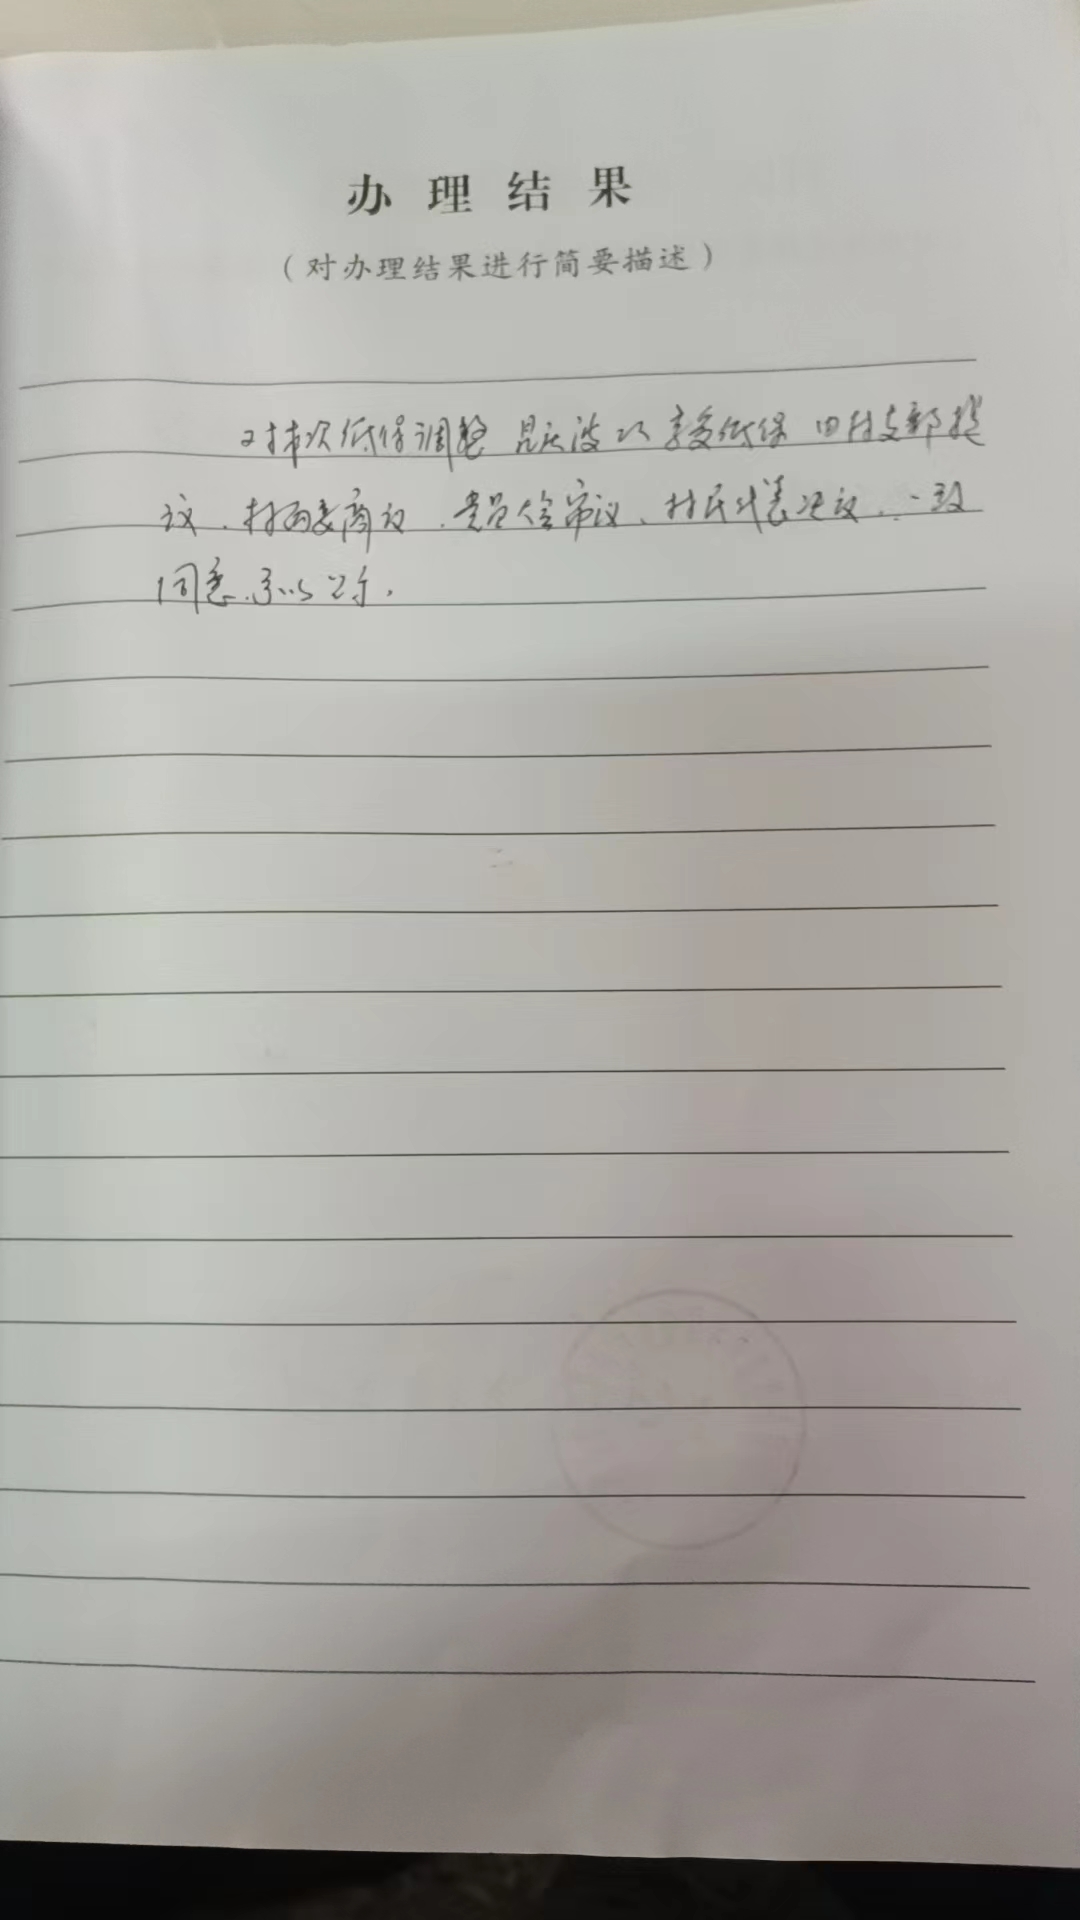 办理结果
（对办理结果进行简要描述）
对本次低保调整 昆庆波以 享受低保 由村支部提
议、村两委商议、党员大会审议、村民代表决议、一致
同意，予以公示。